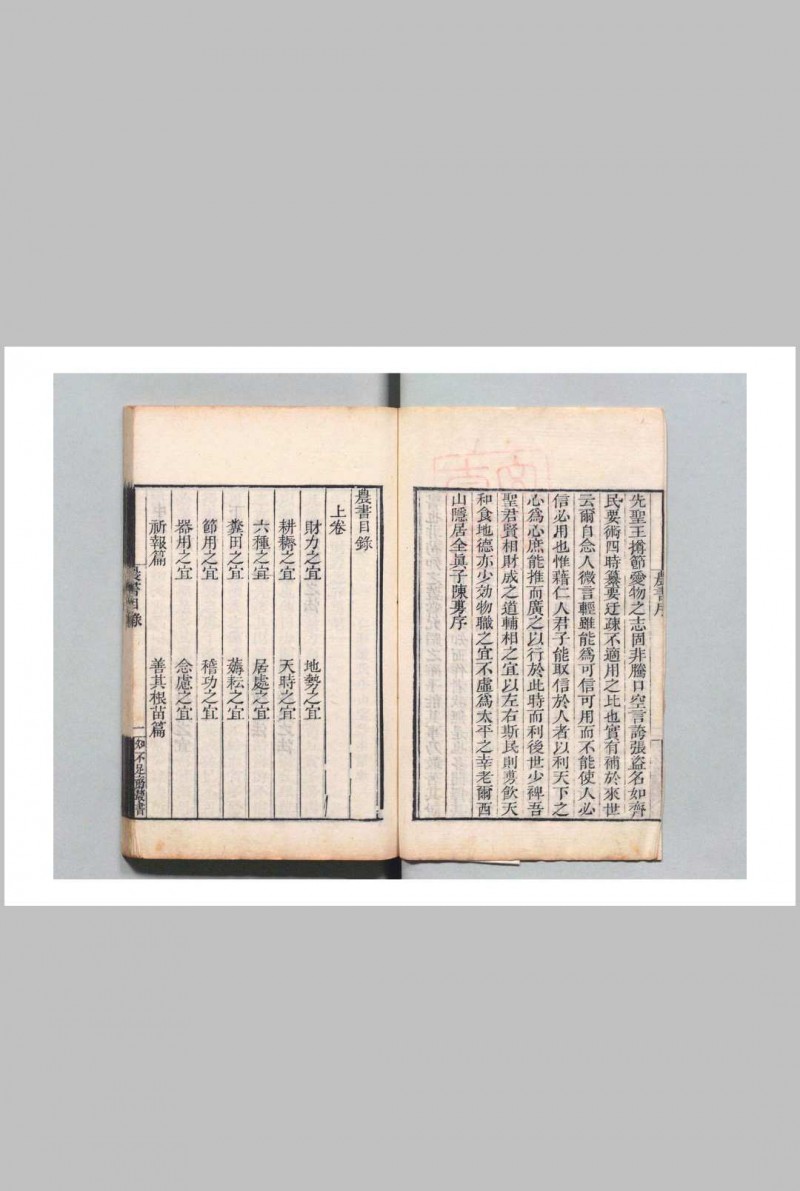 農書序
先聖王撙節愛物之志固非騰口空言誇張盜名如齊
民要術四時纂要迂疎不適用之比也實有補於來世
云爾自念人微言輕雖能爲可信可用而不能使人必
信必用也惟藉仁人君子能取信於人者以利天下之
心爲心庶能推而廣之以行於此時而利後世少裨吾
聖君賢相財成之道輔相之宜以左右斯民則旉飲天
和食地德亦少効物職之宜不虛爲太平之幸老爾西
山隱居全眞子陳旉序
農書目錄
上卷
財力之宜 地勢之宜
耕耨之宜 天時之宜
六種之宜 居處之宜
糞田之宜 薅耘之宜
節用之宜 稽功之宜
器用之宜 念慮之宜
祈報篇 善其根苗篇
農書目錄 一 知不足齋叢書